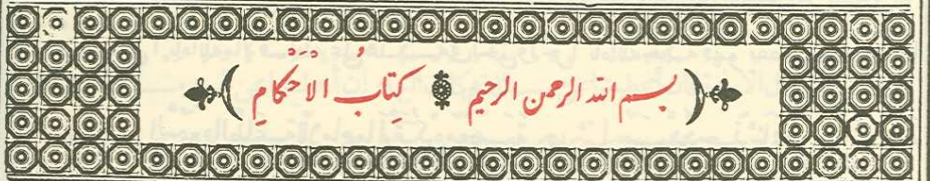 بسم الله الرحمن الرحيم كِتَابُ الْاَحْكَامِ